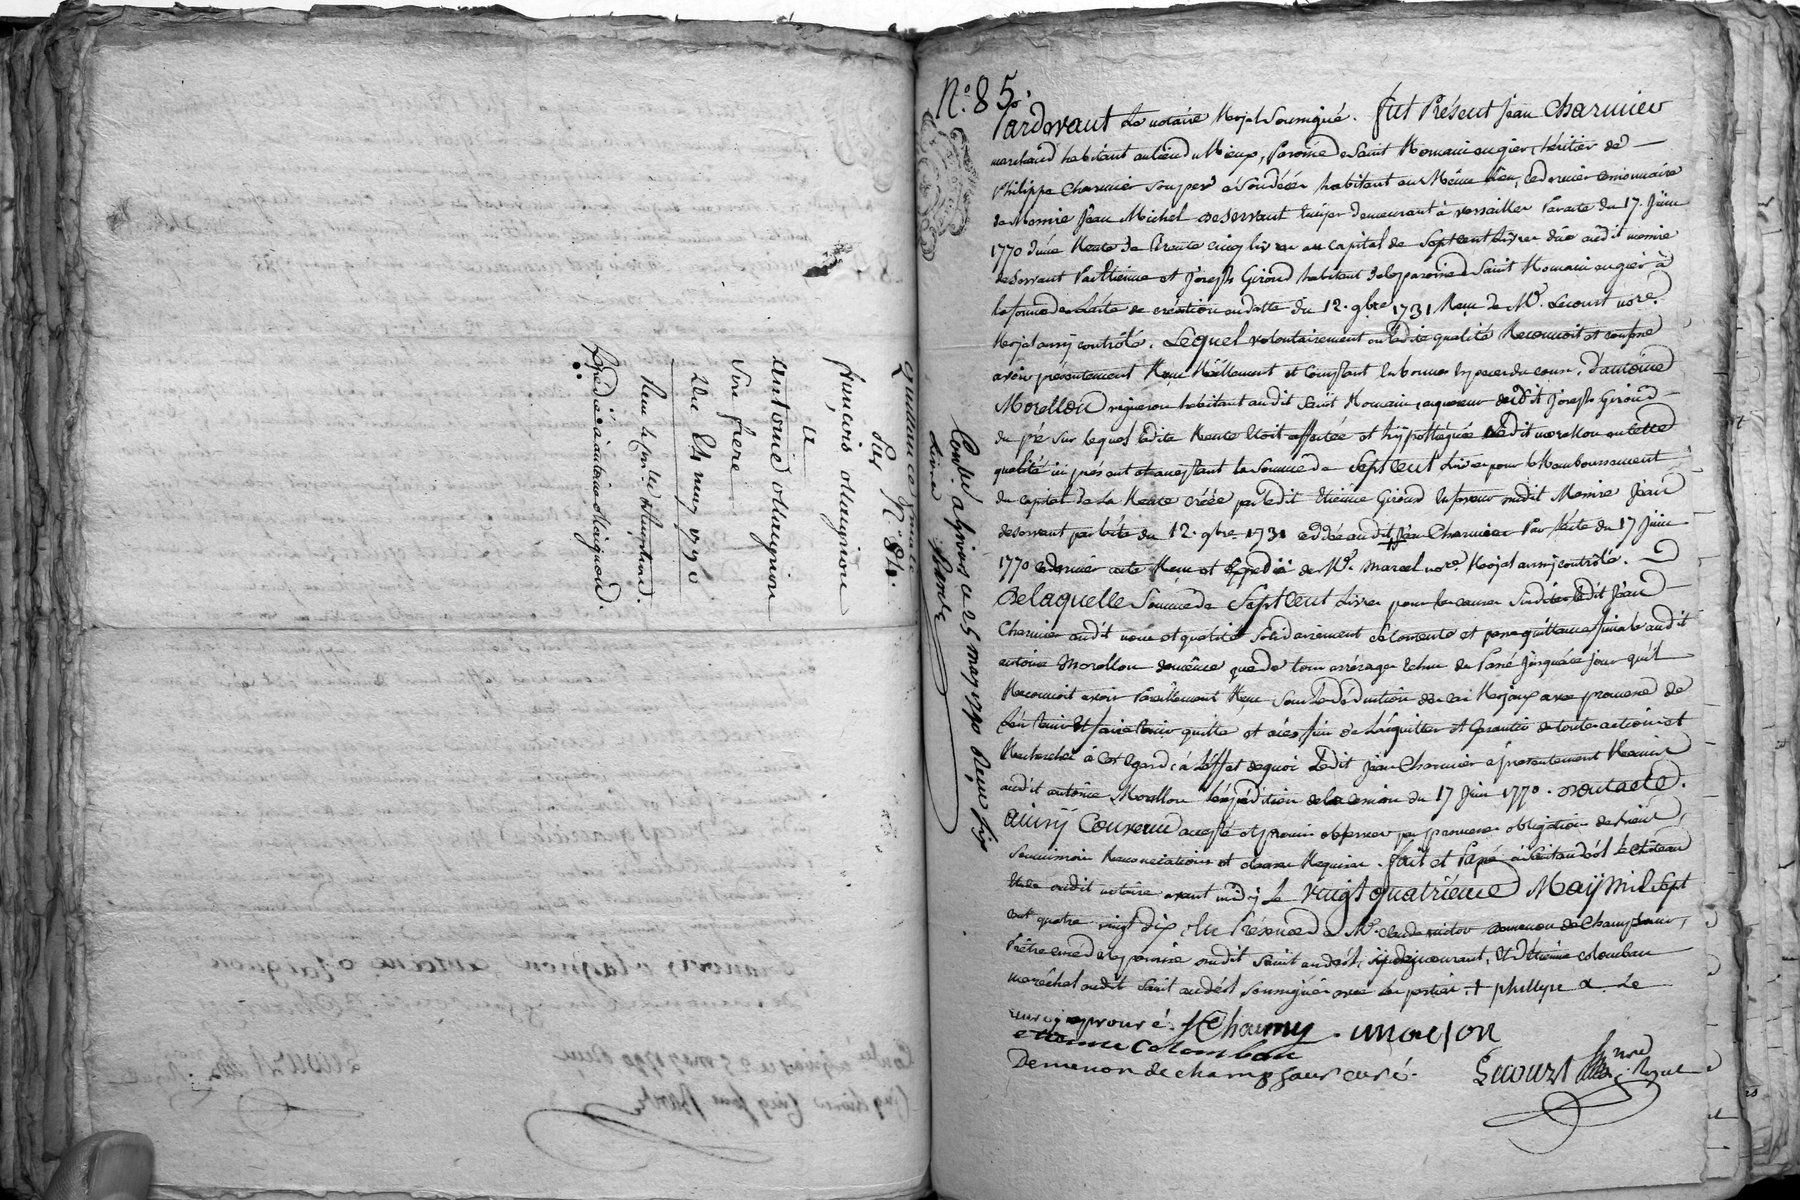 quittance finale
par N.° 84.
françois Maignon
a
antoine Maignon
son frere
Du 24 may 1790
Expédiée à antoine Maignon.
N.° 85.
Pardevant Le notaire Royal Soussigné. fut Présent Jean Charmier
marchand habitant au lieu du Mieux, Paroisse de Saint Romain en gier, héritier de
Philippe Charmier son pere à son décès habitant au Même lieu, ce dernier cessionnaire
de Messire Jean Michel deservant Ecuyer demeurant à versailles Par acte du 17. Juin
1770 d'une Rente de trente cinq livres au capital de Sept cent Livres düe audit messire
deservant Par Etienne et Joseph Giroud habitant de la paroisse de Saint Romain en gier à
la forme de L'acte de création en datte du 12. 9bre 1731 Reçu de Me. Lecourt nore.
Royal aussy contrôlé. Lequel volontairement en ladite qualité Reconnoit et confesse
avoir présentement Reçu Réellement et Comptant en bonnes especes du cours, d'antoine
Morellon vigneron habitant audit Saint Romain, acquereur dudit Joseph Giroud
du pré sur lequel ladite Rente Etoit affectée et hypothéquée Ledit morellon en cette
qualité ici présent et acceptant la Somme de Sept Cent Livres pour le Remboursement
du capital de La Rente créée par ledit Etienne Giroud en faveur audit Messire Jean
deservant par L'acte du 12. 9bre 1731 cédée audit Jean Charmier Par L'acte du 17 Juin
1770 ce dernier acte Reçu et Expedié de Me. Marcel nore. Royal aussy contrôlé.
De laquelle Somme de Sept Cent Livres pour les causes Susdites ledit Jean
Charmier audit nom et qualité Solidairement Se Contente et passe quittance finale audit
antoine Morellon de même que de tous arrérages Echus du Passé Jusqu'à ce jour qu'il
Reconnoit avoir Pareillement Reçu Sous la déduction des cas Royaux avec promesse de
L'en tenir et faire tenir quitte et à ces fins de L'acquitter et Garantir de toute action et
Recherche à cet Egard; à L'effet de quoi Ledit Jean Charmier a présentement Remis
audit antoine Morellon L'expédition de la cession du 17 Juin 1770. dont acte.
ainsy Convenu accepté et promis observer par promesse obligation de biens,
Soumission Renonciations et clauses Requises. fait et Passé à Saint andéol le château
Etude audit notaire avant midy Le vingt quatrième May Mil Sept
cent quatre vingt dix, En Présence de Me. claude victor demenon de Champsaur,
Prêtre curé de la paroisse audit Saint andéol, y demeurant, Et d'Etienne colomban
maréchal audit Saint andéol soussignés avec les parties. + philippe a. Le
renvoy aprouvé. J Charmy. moreson
etienne Colomban
Demenon de champsaur curé.
Lecourt nore Royal
Contlé. a Givors ce 25 may 1790 Reçu six
Livres